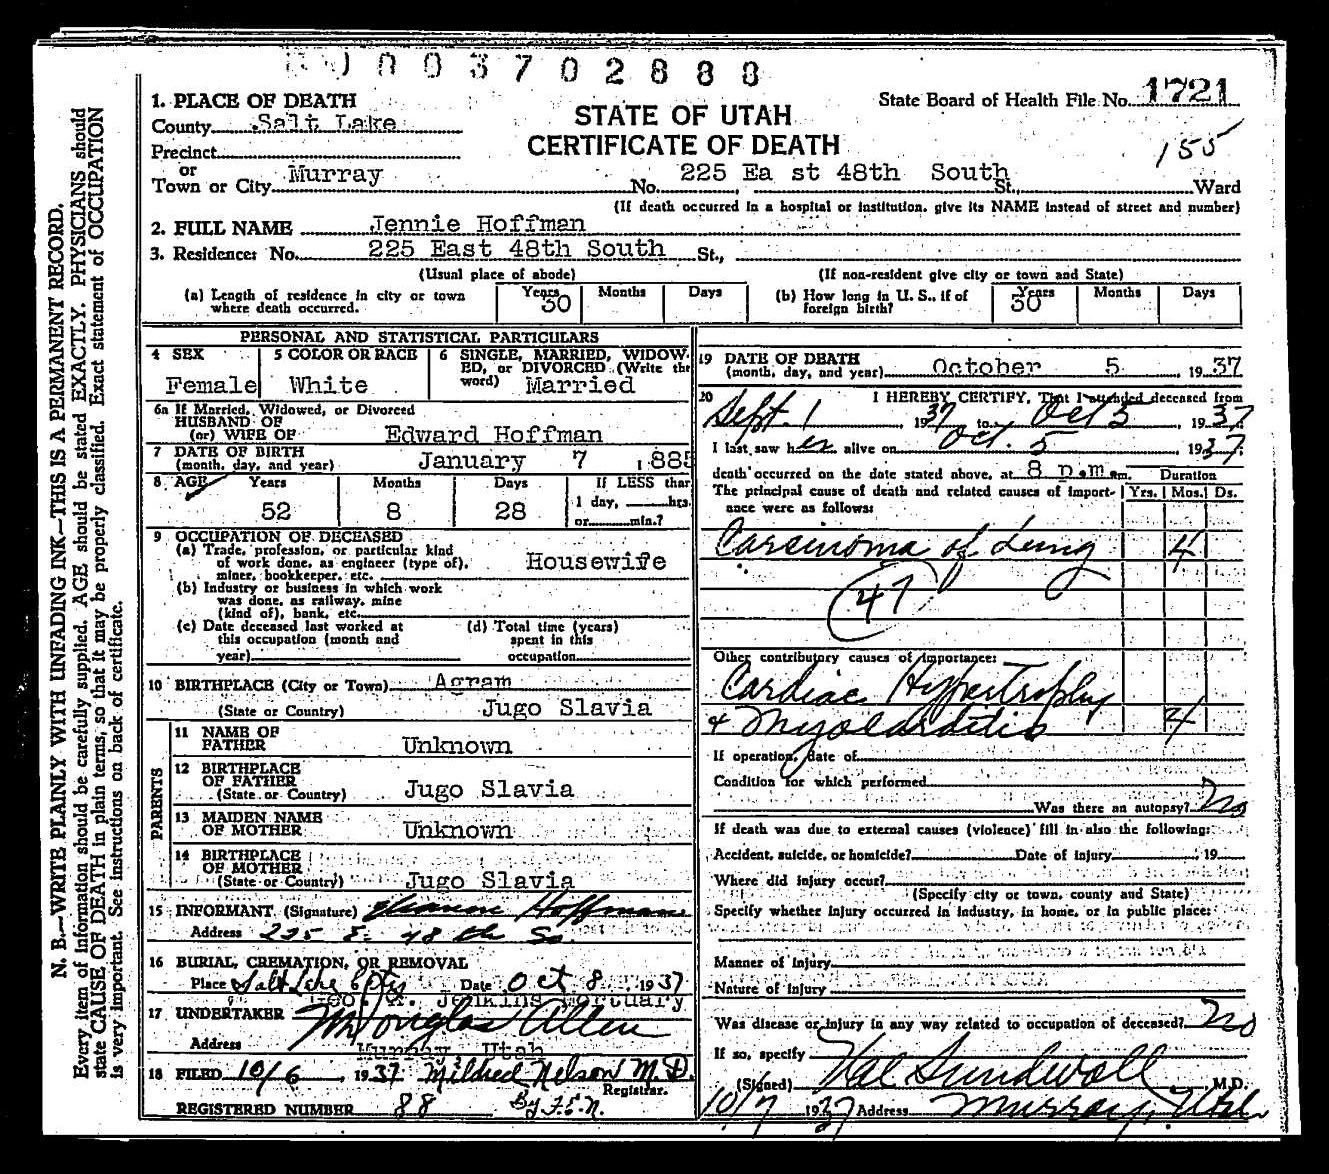 0003702888
1. PLACE OF DEATH
State Board of Health File No. 1721
County Salt Lake
STATE OF UTAH
CERTIFICATE OF DEATH
155
Precinct
or
Town or City Murray No. 225 Ea st 48th South St., Ward
(If death occurred in a hospital or institution, give its NAME instead of street and number)
2. FULL NAME Jennie Hoffman
3. Residence: No. 225 East 48th South St.,
(Usual place of abode) (If non-resident give city or town and State)
(a) Length of residence in city or town where death occurred. Years 30 Months Days (b) How long in U. S., if of foreign birth? Years 30 Months Days
PERSONAL AND STATISTICAL PARTICULARS
4 SEX Female
5 COLOR OR RACE White
6 SINGLE, MARRIED, WIDOWED, or DIVORCED (Write the word) Married
6a If Married, Widowed, or Divorced
HUSBAND OF
(or) WIFE OF Edward Hoffman
7 DATE OF BIRTH
(month, day, and year) January 7 1885
8 AGE Years Months Days If LESS than
52 8 28 1 day, hrs.
or min.?
9 OCCUPATION OF DECEASED
(a) Trade, profession, or particular kind
of work done, as engineer (type of),
miner, bookkeeper, etc. Housewife
(b) Industry or business in which work
was done, as railway, mine
(kind of), bank, etc.
(c) Date deceased last worked at
this occupation (month and
year)
(d) Total time (years)
spent in this
occupation
10 BIRTHPLACE (City or Town) Agram
(State or Country) Jugo Slavia
PARENTS
11 NAME OF
FATHER Unknown
12 BIRTHPLACE
OF FATHER
(State or Country) Jugo Slavia
13 MAIDEN NAME
OF MOTHER Unknown
14 BIRTHPLACE
OF MOTHER
(State or Country) Jugo Slavia
15 INFORMANT (Signature) Hoffman
Address 225 E. 48th So.
16 BURIAL, CREMATION, OR REMOVAL
Place Salt Lake City Date Oct 8 1937
Jenkins Mortuary
17 UNDERTAKER M Douglas Allen
Address Murray, Utah
18 FILED 10/6, 1937 Mildred Nelson M.D.
Registrar.
REGISTERED NUMBER 88 By F.E.N.
19 DATE OF DEATH
(month, day, and year) October 5, 1937
20 I HEREBY CERTIFY, That I attended deceased from
Sept. 1, 1937 to Oct 5, 1937
I last saw her alive on Oct. 5 1937
death occurred on the date stated above, at 8 p.m. m. Duration
The principal cause of death and related causes of importance were as follows: Yrs. Mos. Ds.
Carcinoma of Lung 4
47
Other contributory causes of importance:
Cardiac Hypertrophy
& Myocarditis 4
If operation, date of
Condition for which performed
Was there an autopsy? No
If death was due to external causes (violence) fill in also the following:
Accident, suicide, or homicide? Date of injury, 19
Where did injury occur?
(Specify city or town, county and State)
Specify whether injury occurred in industry, in home, or in public place:
Manner of injury
Nature of injury
Was disease or injury in any way related to occupation of deceased? No
If so, specify
(Signed) Val Sundwall, M.D.
10/7 1937 Address Murray, Utah
N. B.—WRITE PLAINLY WITH UNFADING INK—THIS IS A PERMANENT RECORD.
Every item of information should be carefully supplied. AGE should be stated EXACTLY. PHYSICIANS should
state CAUSE OF DEATH in plain terms, so that it may be properly classified. Exact statement of OCCUPATION
is very important. See instructions on back of certificate.